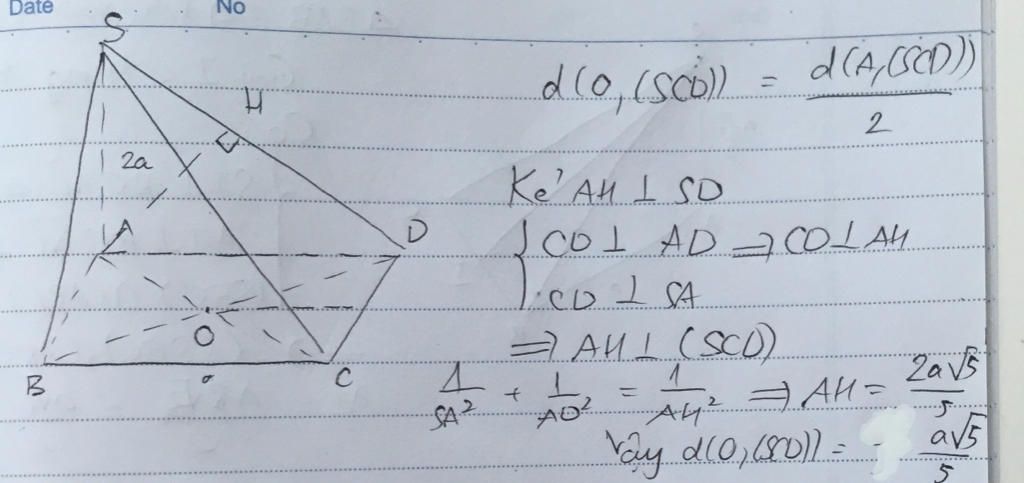 Date
No
S
H
2a
A
D
O
B
a
C
d(O,(SCD)) = d(A,(SCD))/2
Kẻ AH ⊥ SD
{ CD ⊥ AD ⇒ CD ⊥ AH
CD ⊥ SA
⇒ AH ⊥ (SCD)
1/SA² + 1/AD² = 1/AH² ⇒ AH = 2a√5/5
Vậy d(O,(SCD)) = a√5/5